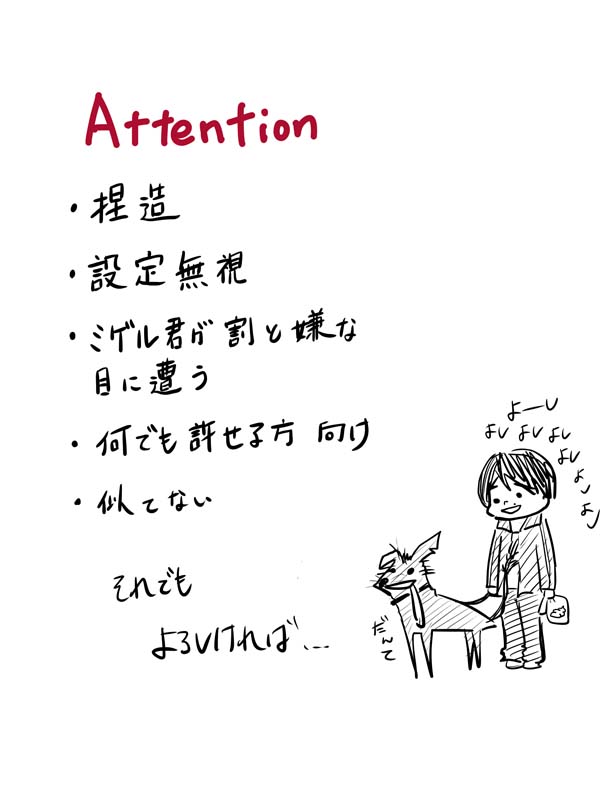 Attention
・捏造
・設定無視
・ミゲル君が割と嫌な
目に遭う
・何でも許せる方向け
・似てない
それでも
よろしければ…
よーし
よし よし よし
よし
よし
よし
だんて